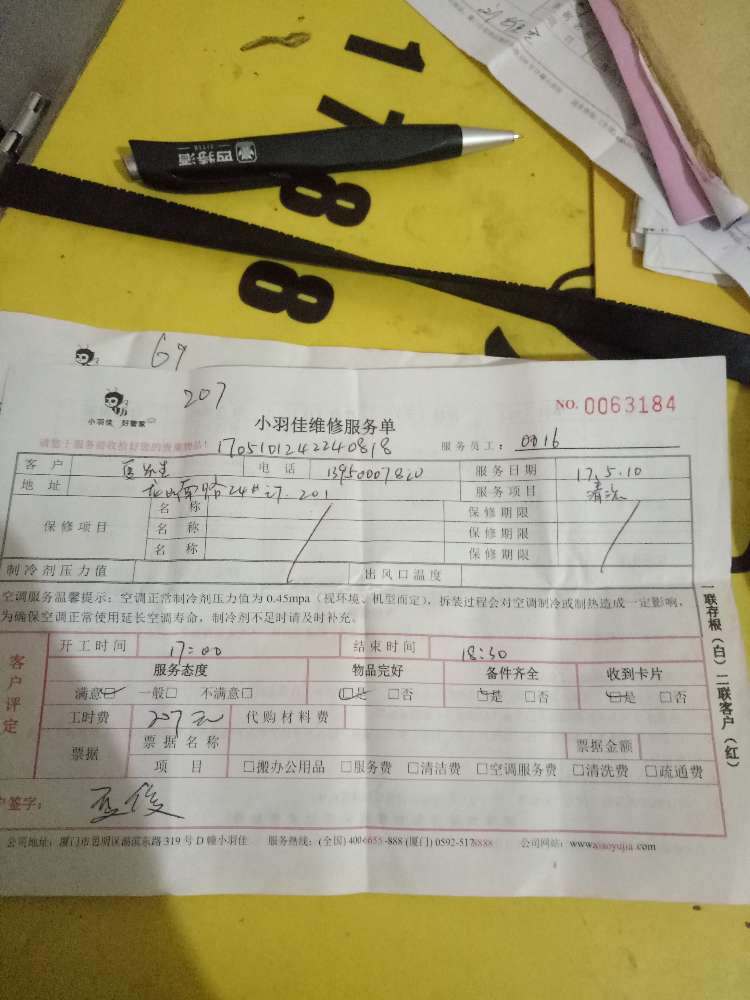 1
7
8
8
四特酒
69
207
小羽佳 好管家
小羽佳维修服务单
NO. 0063184
请您于服务前收拾好您的贵重物品！
1705101242240818
服务员工：0016
客 户
电 话 13950007820
服务日期 17.5.10
地 址
服务项目 清洗
保修项目
名 称
保修期限
名 称
保修期限
名 称
保修期限
制冷剂压力值
出风口温度
空调服务温馨提示：空调正常制冷剂压力值为 0.45mpa（视环境、机型而定），拆装过程会对空调制冷或制热造成一定影响，
为确保空调正常使用延长空调寿命，制冷剂不足时请及时补充。
一联存根（白）二联客户（红）
客户评定
开工时间 17:00
结束时间 18:30
服务态度
物品完好
备件齐全
收到卡片
满意☑ 一般□ 不满意□
☑是 □否
☑是 □否
☑是 □否
工时费 207元
代购材料费
票据
票据名称
票据金额
项 目
□搬办公用品 □服务费 □清洁费 □空调服务费 □清洗费 □疏通费
户签字：
公司地址：厦门市思明区湖滨东路 319 号 D 幢小羽佳
服务热线：(全国) 4006655-888 (厦门) 0592-5178888
公司网站：www.xiaoyujia.com